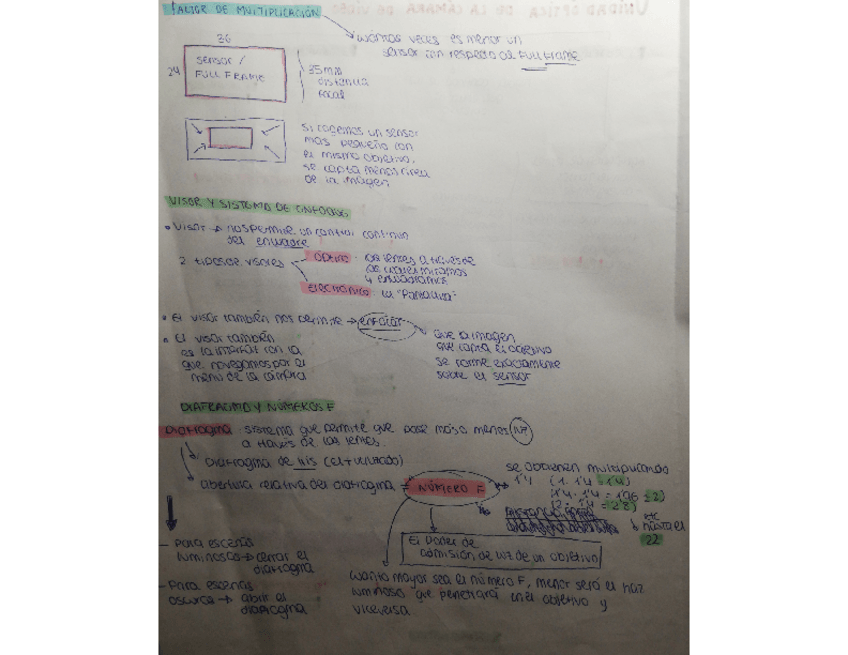 FACTOR DE MULTIPLICACIÓN
cuántas veces es menor un
sensor con respecto al Full Frame
36
24
sensor /
FULL FRAME
35mm
distancia
focal
si cogemos un sensor
más pequeño con
el mismo objetivo,
se capta menos área
de la imagen
VISOR Y SISTEMA DE ENFOQUE
• Visor → nos permite un control continuo
del encuadre
2 tipos de visores
óptico: los lentes a través de
los cuales miramos
y encuadramos
Electrónico: la "Pantallita"
• El visor también nos permite → enfocar
que la imagen
que capta el objetivo
se forme exactamente
sobre el sensor
• El visor también
es la interfaz con la
que navegamos por el
menú de la cámara
DIAFRAGMA Y NÚMEROS F
Diafragma: sistema que permite que pase más o menos luz
a través de las lentes.
Diafragma de iris (el + utilizado)
abertura relativa del diafragma = NÚMERO F
se obtienen multiplicando
1'4 (1. 1'4 = 1'4)
(1'4. 1'4 = 1'96 ≈ 2)
(2. 1'4 = 2'8)
etc
hasta el
22
El Poder de
admisión de luz de un objetivo
- Para escena
luminosa → cerrar el
diafragma
- Para escenas
oscura → abrir el
diafragma
cuanto mayor sea el número F, menor será el haz
luminoso que penetrará en el objetivo y
viceversa